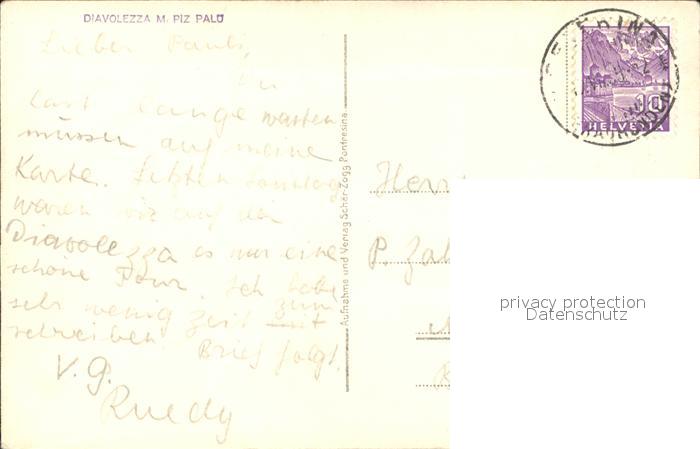 DIAVOLEZZA M. PIZ PALÜ
Lieber Pauli,
Du
hast lange warten
müssen auf meine
Karte. Letzten Sonntag
waren wir auf der
Diavolezza es war eine
schöne Tour. Ich habe
sehr wenig Zeit zum
schreiben. Brief folgt.
V. G.
Ruedy
Aufnahme und Verlag Scher-Zogg Pontresina
10
HELVETIA
Herrn
P. Zal
privacy protection
Datenschutz